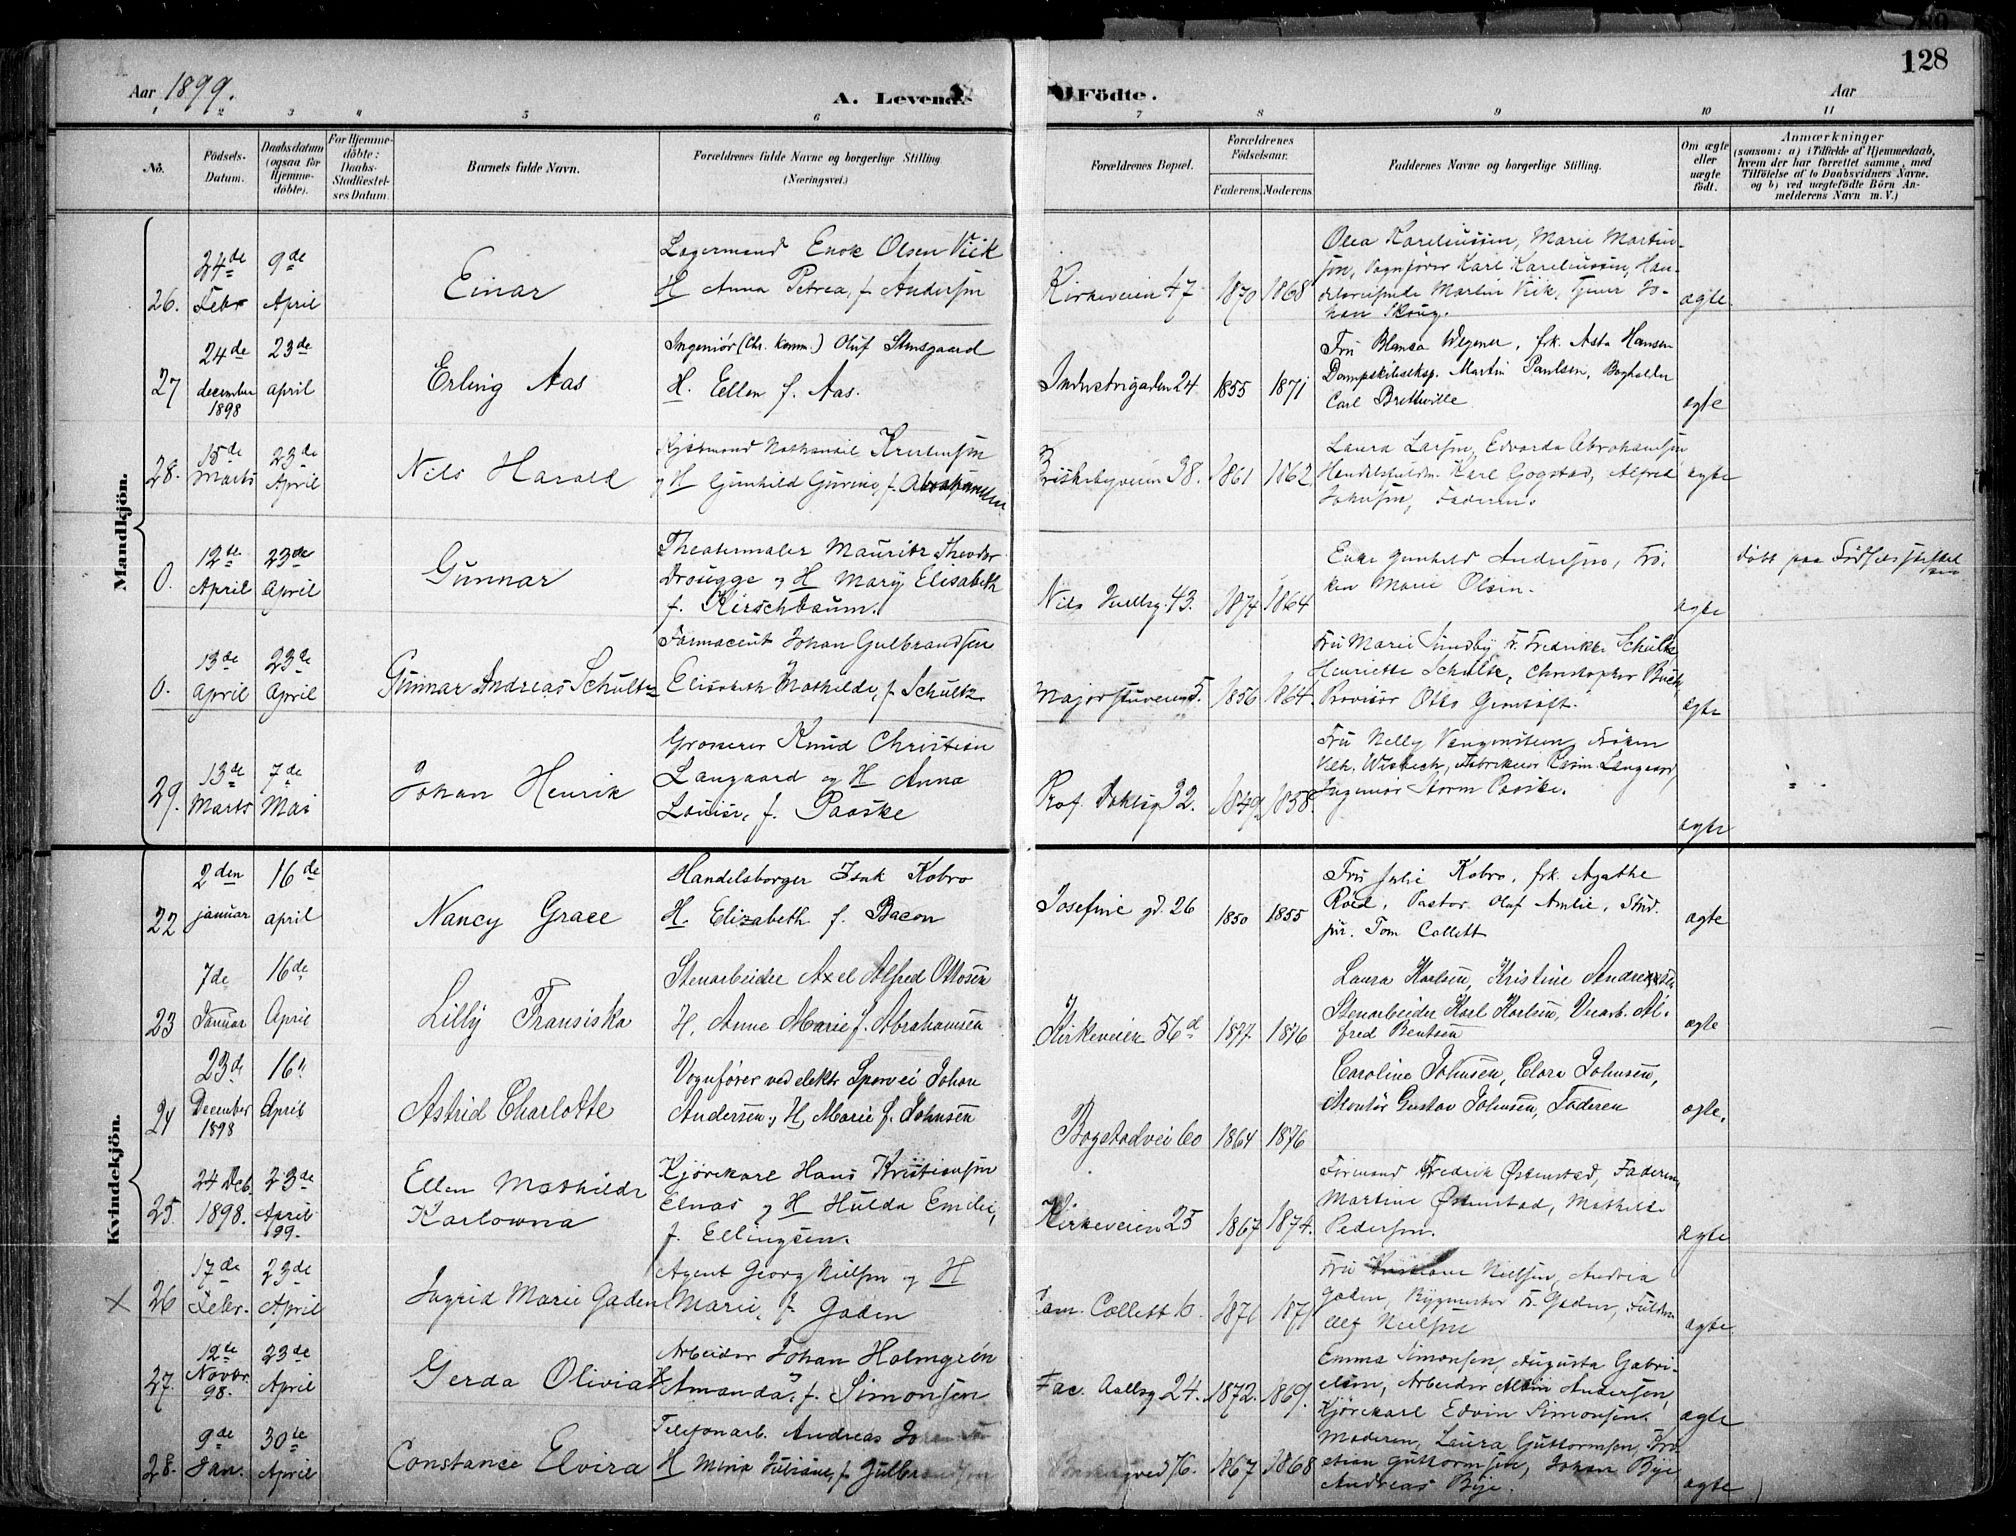 128
Aar 1899.
A. Levende
Födte.
Aar
1 2 3 4 5 6 7 8 9 10 11
No.
Födsels-
Datum.
Daabsdatum
(ogsaa for
Hjemme-
döbte).
For Hjemme-
döbte:
Daabs-
Stadfæstel-
ses Datum.
Barnets fulde Navn.
Forældrenes fulde Navne og borgerlige Stilling.
(Næringsvei.)
Forældrenes Bopæl.
Forældrenes
Födselsaar.
Faderens. Moderens.
Faddernes Navne og borgerlige Stilling.
Om ægte
eller
uægte
födt.
Anmærkninger
(saasom: a) i Tilfælde af Hjemmedaab,
hvem der har forrettet samme, med
Tilföielse af to Daabsvidners Navne,
og b) ved uægtefödte Börn An-
melderens Navn m. V.)
Mandkjön.
26.
24de
Febr
9de
April
Einar
Lagermand Enok Olsen Viik
H Anna Petrea, f. Andersen
Kirkeveien 47
1870
1868
Olea Kareliussen, Marie Martin-
sen, Vognfører Karl Kareliussen, Han-
delsreisende Martin Viik, Tjener Jo-
han Skoug.
ægte.
27
24de
december
1898
23de
april
Erling Aas
Ingeniør (Chr. Komm.) Oluf Stensgaard
H. Ellen f. Aas.
Industrigaden 24
1855
1871
Fru Blanca Wegener, frk. Asta Hansen
Dampskibseksp. Martin Paulsen, Bogholder
Carl Bretteville
ægte
28.
15de
Marts
23de
April
Nils Harald
Nathanäil
H Gunhild f. Abrahamsen
38.
1861
1862.
Laura Larsen, Edvarda Abrahamsen
Karl Gogstad, Alfred
Johnsen, Faderen.
ægte
0.
12te
April
23de
April
Gunnar
Theatermaler Mauritz Theodor
Drougge og H Mary Elisabeth
f. Kirschbaum.
Nils Juelsg. 43.
1874
1864
Enke Gunhild Andersen, Frö-
ken Marie Olsen.
ægte
döbt paa Födselsstiftel
sen
0.
13de
April
23de
April
Gunnar Andreas Schultz
Farmaceut Johan Gulbrandsen
Elisabeth Mathilde, f. Schultz
Majorstuveien 5.
1856
1864.
Fru Marie Sundby, Fr. Fredrikke Schultz
Henriette Schultz, Christopher
Provisor Otto
ægte
29.
13de
Marts
7de
Mai
Johan Henrik
Grosserer Knud Christian
Langaard og H Anna
Louise, f. Paaske
Prof. Dahlsg 32.
1849.
1858.
Fru Nelly Vangensteen, Frøken
Vilh. Wisbech, Fabrikeier Langaard,
Ingeniør Storm Paaske.
ægte
Kvindekjön.
22
2den
januar
16de
april
Nancy Grace
Handelsborger Isak Kobro
H. Elizabeth f. Bacon
Josefine gd. 26
1850
1855
Fru Julie Kobro, frk. Agathe
Röed, Pastor Olaf Amlie, Stud.
jur. Tom Collett
ægte
23
7de
Januar
16de
April
Lilly Fransiska
Stenarbeider Axel Alfred Ottosen
H. Anne Marie f. Abrahamsen
Kirkeveien 56d
1877.
1876
Laura Karlsen, Kristine
Stenarbeider Karl Karlsen, Al-
fred Bentsen
ægte
24
23d
December
1898
16de
April
Astrid Charlotte
Vognfører ved elektr Sporvei Johan
Andersen, H. Marie f. Johnsen
Bogstadvei 60
1864
1876
Caroline Johnsen, Clara Johnsen,
Montör Gustav Johnsen, Faderen
ægte.
25.
24 Deb.
1898.
23de
April
199.
Ellen Mathilde
Karlowna
Kjørekarl Hans Kristiansen
Elnas og H Hulda Emilie,
f. Ellingsen.
Kirkeveien 25
1867
1874.
Formand Fredrik Østenstad, Faderen,
Martine Østenstad, Mathilde
Pedersen.
ægte
X 26
17de
Febr.
23de
April
Ingrid Marie Gaden
Agent Georg Nielsen og H
Marie, f. Gaden
Cam. Collett 6.
1871
1871
Fru Nielsen, Andrea
Gaden, Bygmester Fr. Gaden,
Alf Nielsen
ægte.
27.
12te
Novbr.
98.
23de
April
Gerda Olivia
Arbeider Johan Holmgrén
H Amanda, f. Simonsen.
Fac. Aallsg 24.
1872.
1869.
Emma Simonsen, Augusta Gabri-
elsen, Arbeider Andersen,
Kjørekarl Edvin Simonsen.
ægte
28.
9de
Jan.
30te
April
Constance Elvira
Telefonarb. Andreas
H Mina Juliane, f. Gulbrandsen
76.
1867
1868
Moderen, Laura Guttormsen,
Guttormsen, Johan Bye
Andreas Bye.
ægte